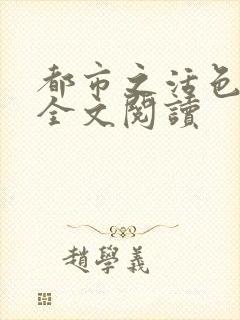 都市之活色
全文閱讀
趙學義